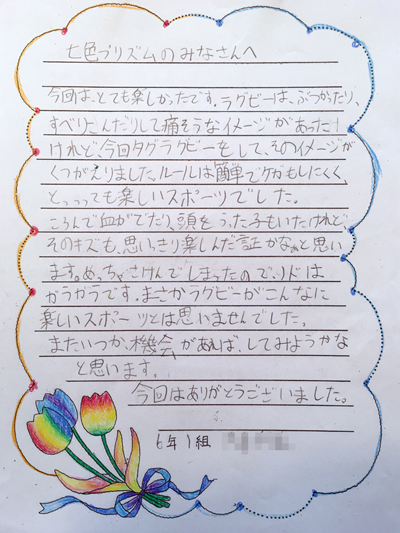 七色プリズムのみなさんへ
今回は、とても楽しかったです。ラグビーは、ぶつかったり、
すべりこんだりして痛そうなイメージがあった！
けれど、今回タグラグビーをして、そのイメージが
くつがえりました。ルールは簡単でケガもしにくく、
とっっっても楽しいスポーツでした。
ころんで血がでたり、頭をうった子もいたけれど、
そのキズも、思いっきり楽しんだ証かなぁと思い
ます。めっちゃさけんでしまったので、のどは
ガラガラです。まさかラグビーがこんなに
楽しいスポーツとは思いませんでした。
またいつか、機会があれば、してみようかな
と思います。
今回はありがとうございました。
6年1組